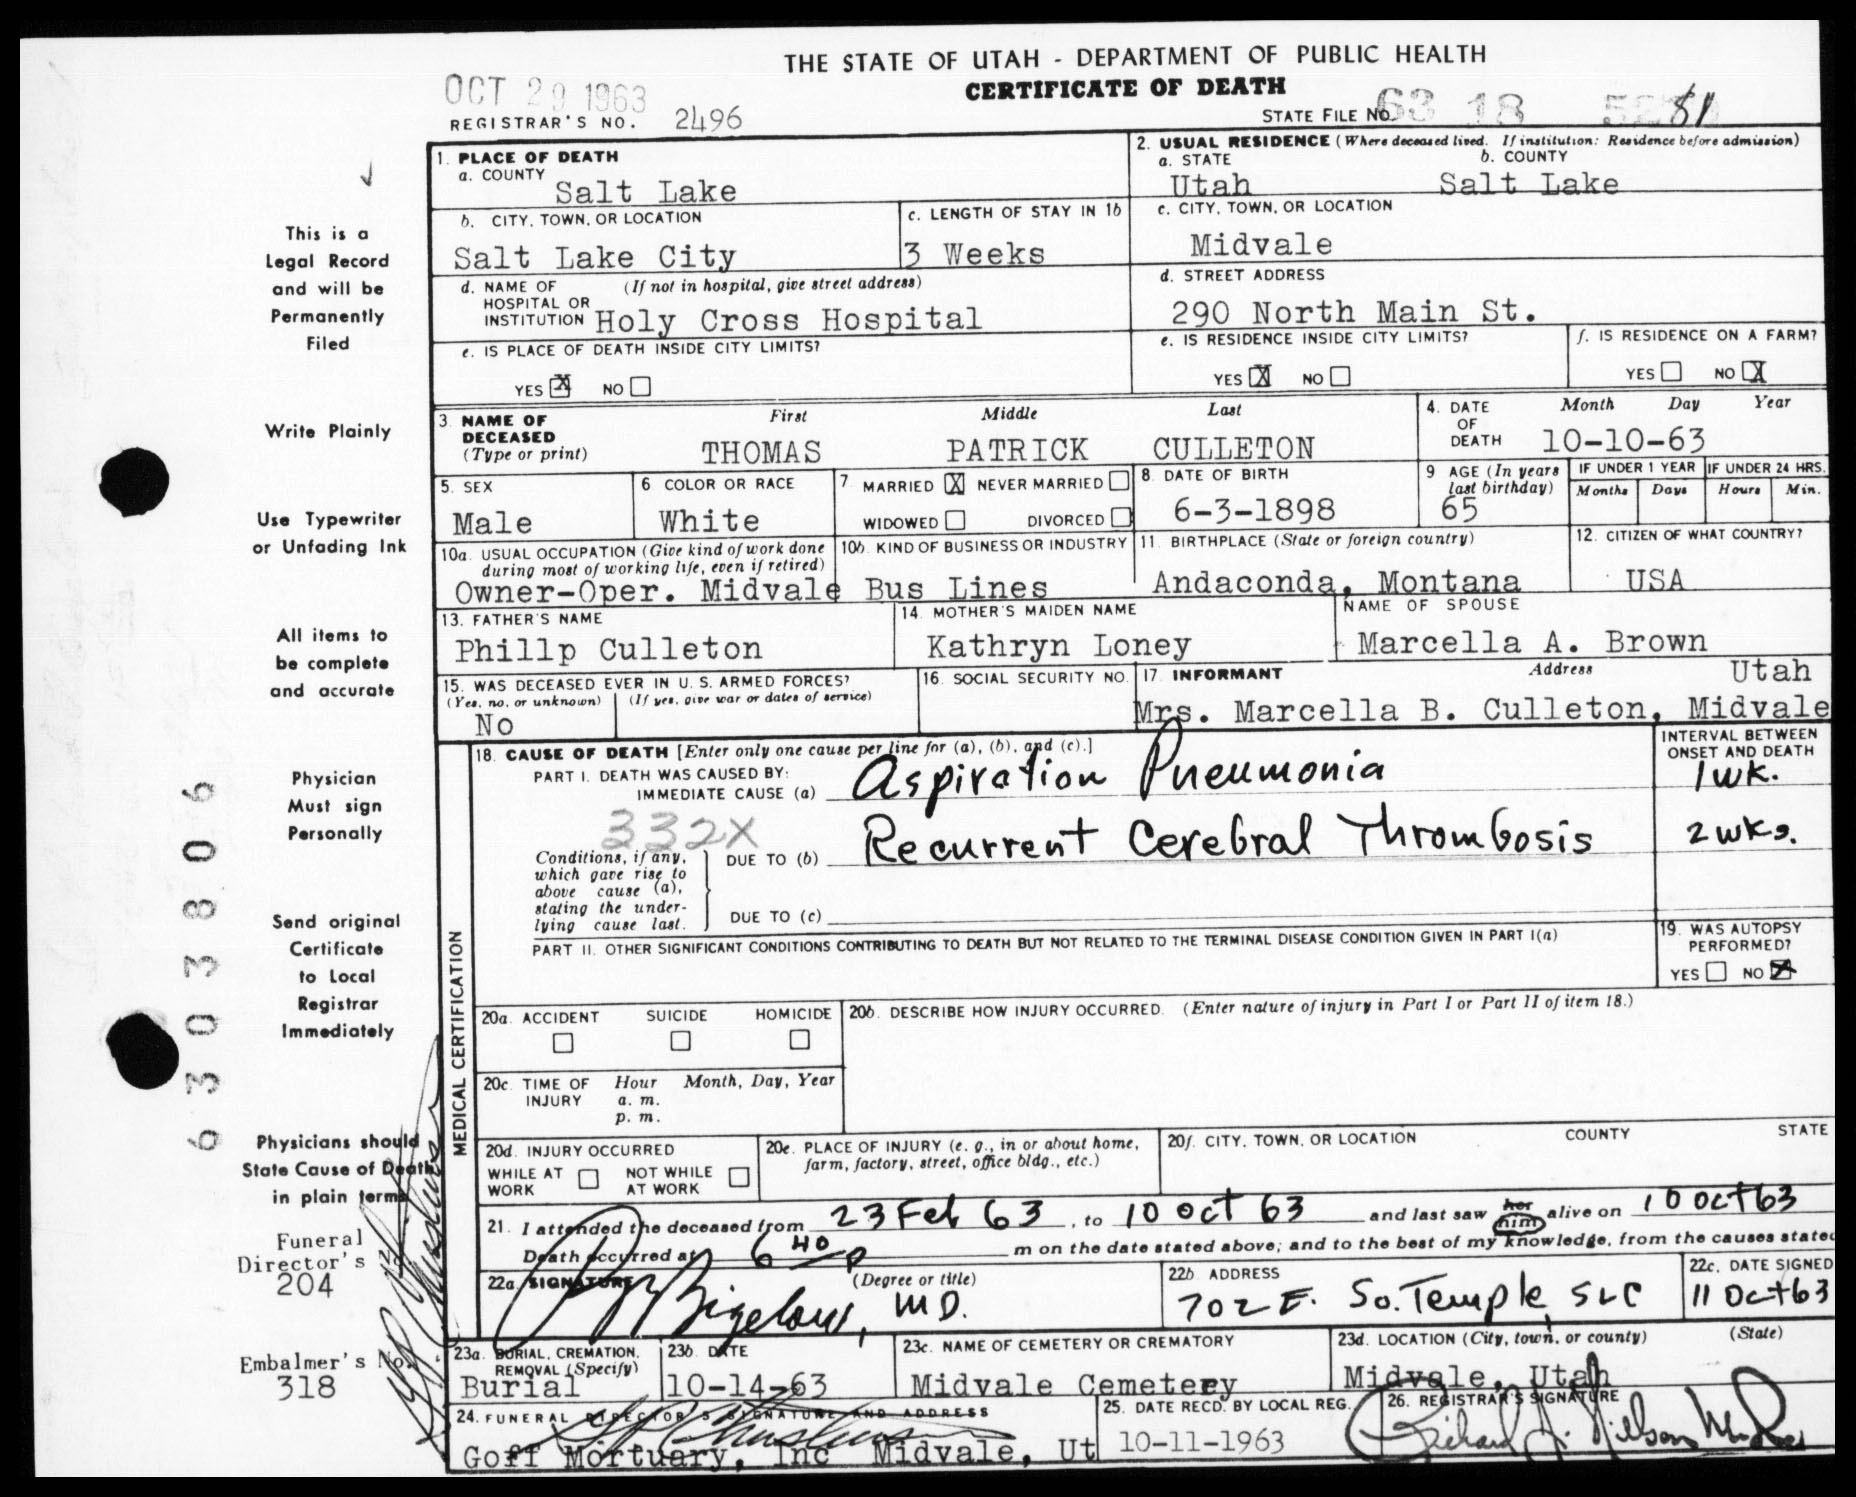 THE STATE OF UTAH - DEPARTMENT OF PUBLIC HEALTH
CERTIFICATE OF DEATH
OCT 29 1963
REGISTRAR'S NO. 2496
STATE FILE NO. 63 18 81
This is a
Legal Record
and will be
Permanently
Filed
Write Plainly
Use Typewriter
or Unfading Ink
All items to
be complete
and accurate
Physician
Must sign
Personally
Send original
Certificate
to Local
Registrar
Immediately
Physicians should
State Cause of Death
in plain terms
Funeral
Director's No.
204
Embalmer's No.
318
6303806
1. PLACE OF DEATH
a. COUNTY
Salt Lake
2. USUAL RESIDENCE (Where deceased lived. If institution: Residence before admission)
a. STATE b. COUNTY
Utah Salt Lake
b. CITY, TOWN, OR LOCATION
Salt Lake City
c. LENGTH OF STAY IN 1b
3 Weeks
c. CITY, TOWN, OR LOCATION
Midvale
d. NAME OF (If not in hospital, give street address)
HOSPITAL OR
INSTITUTION Holy Cross Hospital
d. STREET ADDRESS
290 North Main St.
e. IS PLACE OF DEATH INSIDE CITY LIMITS?
YES X NO
e. IS RESIDENCE INSIDE CITY LIMITS?
YES X NO
f. IS RESIDENCE ON A FARM?
YES NO X
3. NAME OF
DECEASED
(Type or print)
First Middle Last
THOMAS PATRICK CULLETON
4. DATE
OF
DEATH
Month Day Year
10-10-63
5. SEX
Male
6. COLOR OR RACE
White
7. MARRIED X NEVER MARRIED
WIDOWED DIVORCED
8. DATE OF BIRTH
6-3-1898
9. AGE (In years
last birthday)
65
IF UNDER 1 YEAR
Months Days
IF UNDER 24 HRS.
Hours Min.
10a. USUAL OCCUPATION (Give kind of work done
during most of working life, even if retired)
10b. KIND OF BUSINESS OR INDUSTRY
Owner-Oper. Midvale Bus Lines
11. BIRTHPLACE (State or foreign country)
Andaconda, Montana
12. CITIZEN OF WHAT COUNTRY?
USA
13. FATHER'S NAME
Phillp Culleton
14. MOTHER'S MAIDEN NAME
Kathryn Loney
NAME OF SPOUSE
Marcella A. Brown
15. WAS DECEASED EVER IN U. S. ARMED FORCES?
(Yes, no, or unknown) (If yes, give war or dates of service)
No
16. SOCIAL SECURITY NO.
17. INFORMANT Address Utah
Mrs. Marcella B. Culleton, Midvale
MEDICAL CERTIFICATION
18. CAUSE OF DEATH [Enter only one cause per line for (a), (b), and (c).]
INTERVAL BETWEEN
ONSET AND DEATH
PART I. DEATH WAS CAUSED BY:
IMMEDIATE CAUSE (a) Aspiration Pneumonia 1 wk.
332X
Conditions, if any,
which gave rise to
above cause (a),
stating the under-
lying cause last.
DUE TO (b) Recurrent Cerebral Thrombosis 2 wks.
DUE TO (c)
PART II. OTHER SIGNIFICANT CONDITIONS CONTRIBUTING TO DEATH BUT NOT RELATED TO THE TERMINAL DISEASE CONDITION GIVEN IN PART I(a)
19. WAS AUTOPSY
PERFORMED?
YES NO X
20a. ACCIDENT SUICIDE HOMICIDE
20b. DESCRIBE HOW INJURY OCCURRED. (Enter nature of injury in Part I or Part II of item 18.)
20c. TIME OF Hour Month, Day, Year
INJURY a. m.
p. m.
20d. INJURY OCCURRED
WHILE AT NOT WHILE
WORK AT WORK
20e. PLACE OF INJURY (e. g., in or about home,
farm, factory, street, office bldg., etc.)
20f. CITY, TOWN, OR LOCATION COUNTY STATE
21. I attended the deceased from 23 Feb 63, to 10 Oct 63 and last saw her him alive on 10 Oct 63
Death occurred at 6 40 p m on the date stated above; and to the best of my knowledge, from the causes stated
22a. SIGNATURE (Degree or title)
Bigelow, MD.
22b. ADDRESS
702 E. So. Temple, SLC
22c. DATE SIGNED
11 Oct 63
23a. BURIAL, CREMATION,
REMOVAL (Specify)
Burial
23b. DATE
10-14-63
23c. NAME OF CEMETERY OR CREMATORY
Midvale Cemetery
23d. LOCATION (City, town, or county) (State)
Midvale, Utah
24. FUNERAL DIRECTOR'S SIGNATURE AND ADDRESS
Goff Mortuary, Inc Midvale, Ut
25. DATE RECD. BY LOCAL REG.
10-11-1963
26. REGISTRAR'S SIGNATURE
Richard J. Nilson